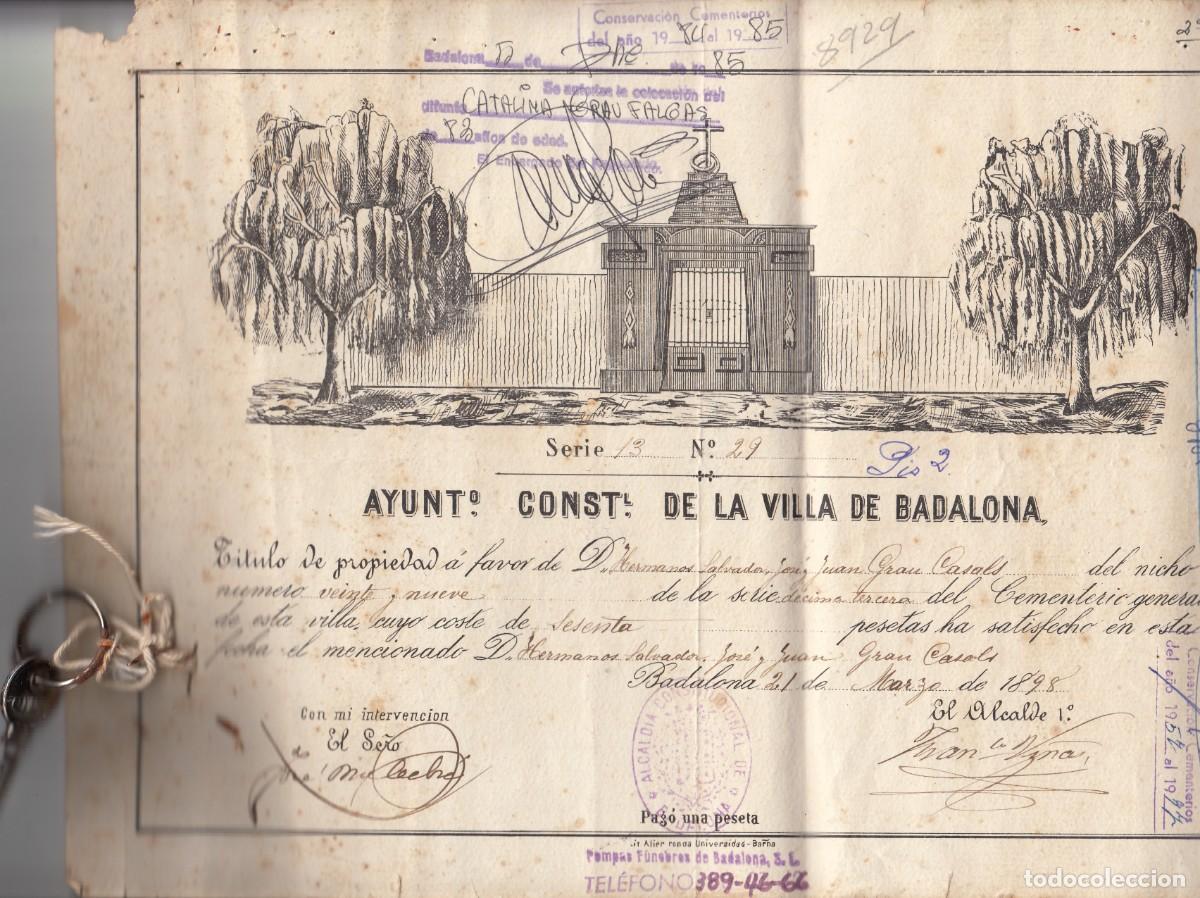 Conservación Cementerios
del año 1984 al 1985
8929
2º
Badalona de de 1985
Se autoriza la colocación del
difunto CATALINA GRAU FALGAS
de 82 años de edad.
El Encargado del
Serie 13 Nº. 29
Pis 2
AYUNTº. CONSTL. DE LA VILLA DE BADALONA,
Título de propiedad á favor de D. Hermanos Salvador, José y Juan Grau Casals del nicho
numero veinte y nueve de la serie décima tercera del Cementerio general
de esta villa, cuyo coste de Sesenta pesetas ha satisfecho en esta
fecha el mencionado D. Hermanos Salvador, José y Juan Grau Casals
Badalona 21 de Marzo de 1898
Con mi intervencion
El Seño
El Alcalde 1º.
ALCALDIA DE BADALONA
Pagó una peseta
Lit Alier ronda Universidad - Barña
Pompas Fúnebres de Badalona, S. L.
TELÉFONO 389-46-66
Conservación Cementerios
del año 1954 al 19
todocoleccion